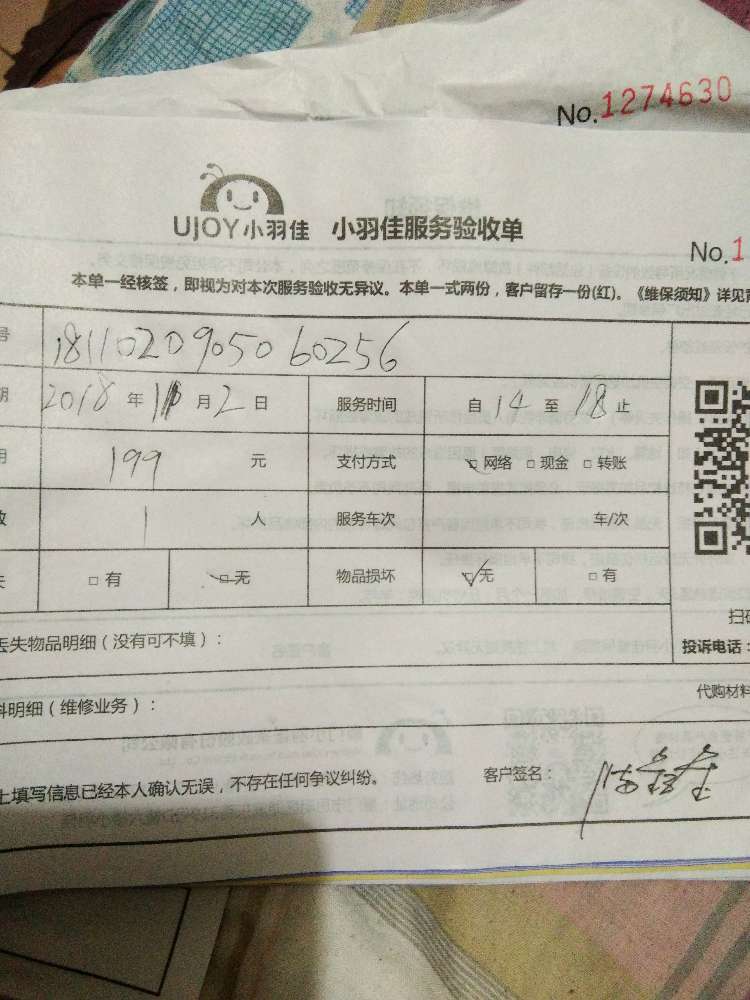 No.1274630
UJOY小羽佳 小羽佳服务验收单
No.1
本单一经核签，即视为对本次服务验收无异议。本单一式两份，客户留存一份(红)。《维保须知》详见背
号 1811020905060256
期 2018 年 11 月 2 日 服务时间 自 14 至 18 止
用 199 元 支付方式 □ 网络 □ 现金 □ 转账
数 1 人 服务车次 车/次
失 □ 有 □ 无 物品损坏 □ 无 □ 有
扫码
丢失物品明细（没有可不填）： 投诉电话：
料明细（维修业务）： 代购材料
上填写信息已经本人确认无误，不存在任何争议纠纷。 客户签名：